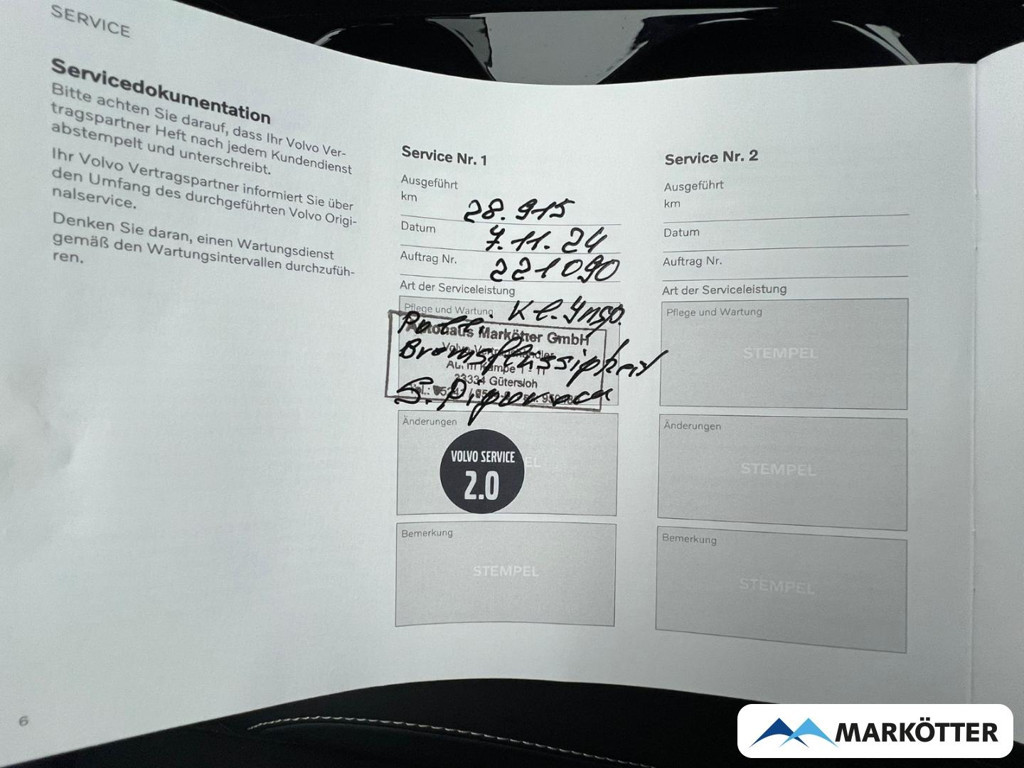 SERVICE
Servicedokumentation
Bitte achten Sie darauf, dass Ihr Volvo Ver-
tragspartner Heft nach jedem Kundendienst
abstempelt und unterschreibt.
Ihr Volvo Vertragspartner informiert Sie über
den Umfang des durchgeführten Volvo Origi-
nalservice.
Denken Sie daran, einen Wartungsdienst
gemäß den Wartungsintervallen durchzufüh-
ren.
6
Service Nr. 1
Ausgeführt
km 28.915
Datum 7.11.24
Auftrag Nr. 221090
Art der Serviceleistung
Pflege und Wartung Kl. Insp.
Autohaus Markötter GmbH
33334 Gütersloh
Änderungen
VOLVO SERVICE
2.0
Bemerkung
STEMPEL
Service Nr. 2
Ausgeführt
km
Datum
Auftrag Nr.
Art der Serviceleistung
Pflege und Wartung
STEMPEL
Änderungen
STEMPEL
Bemerkung
STEMPEL
MARKÖTTER